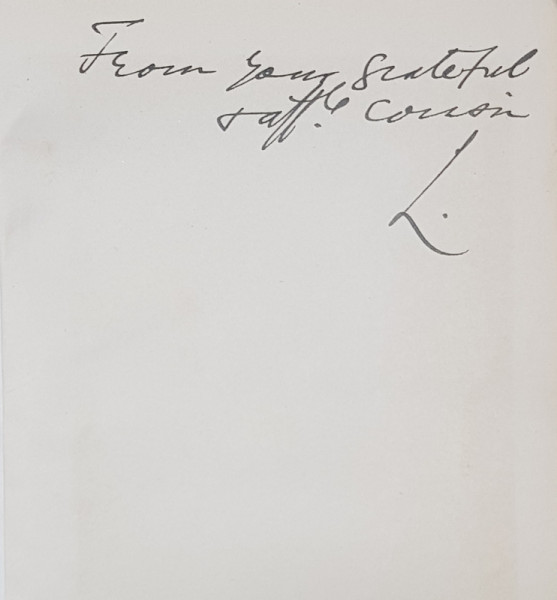 From your grateful
& aff.te cousin
L.